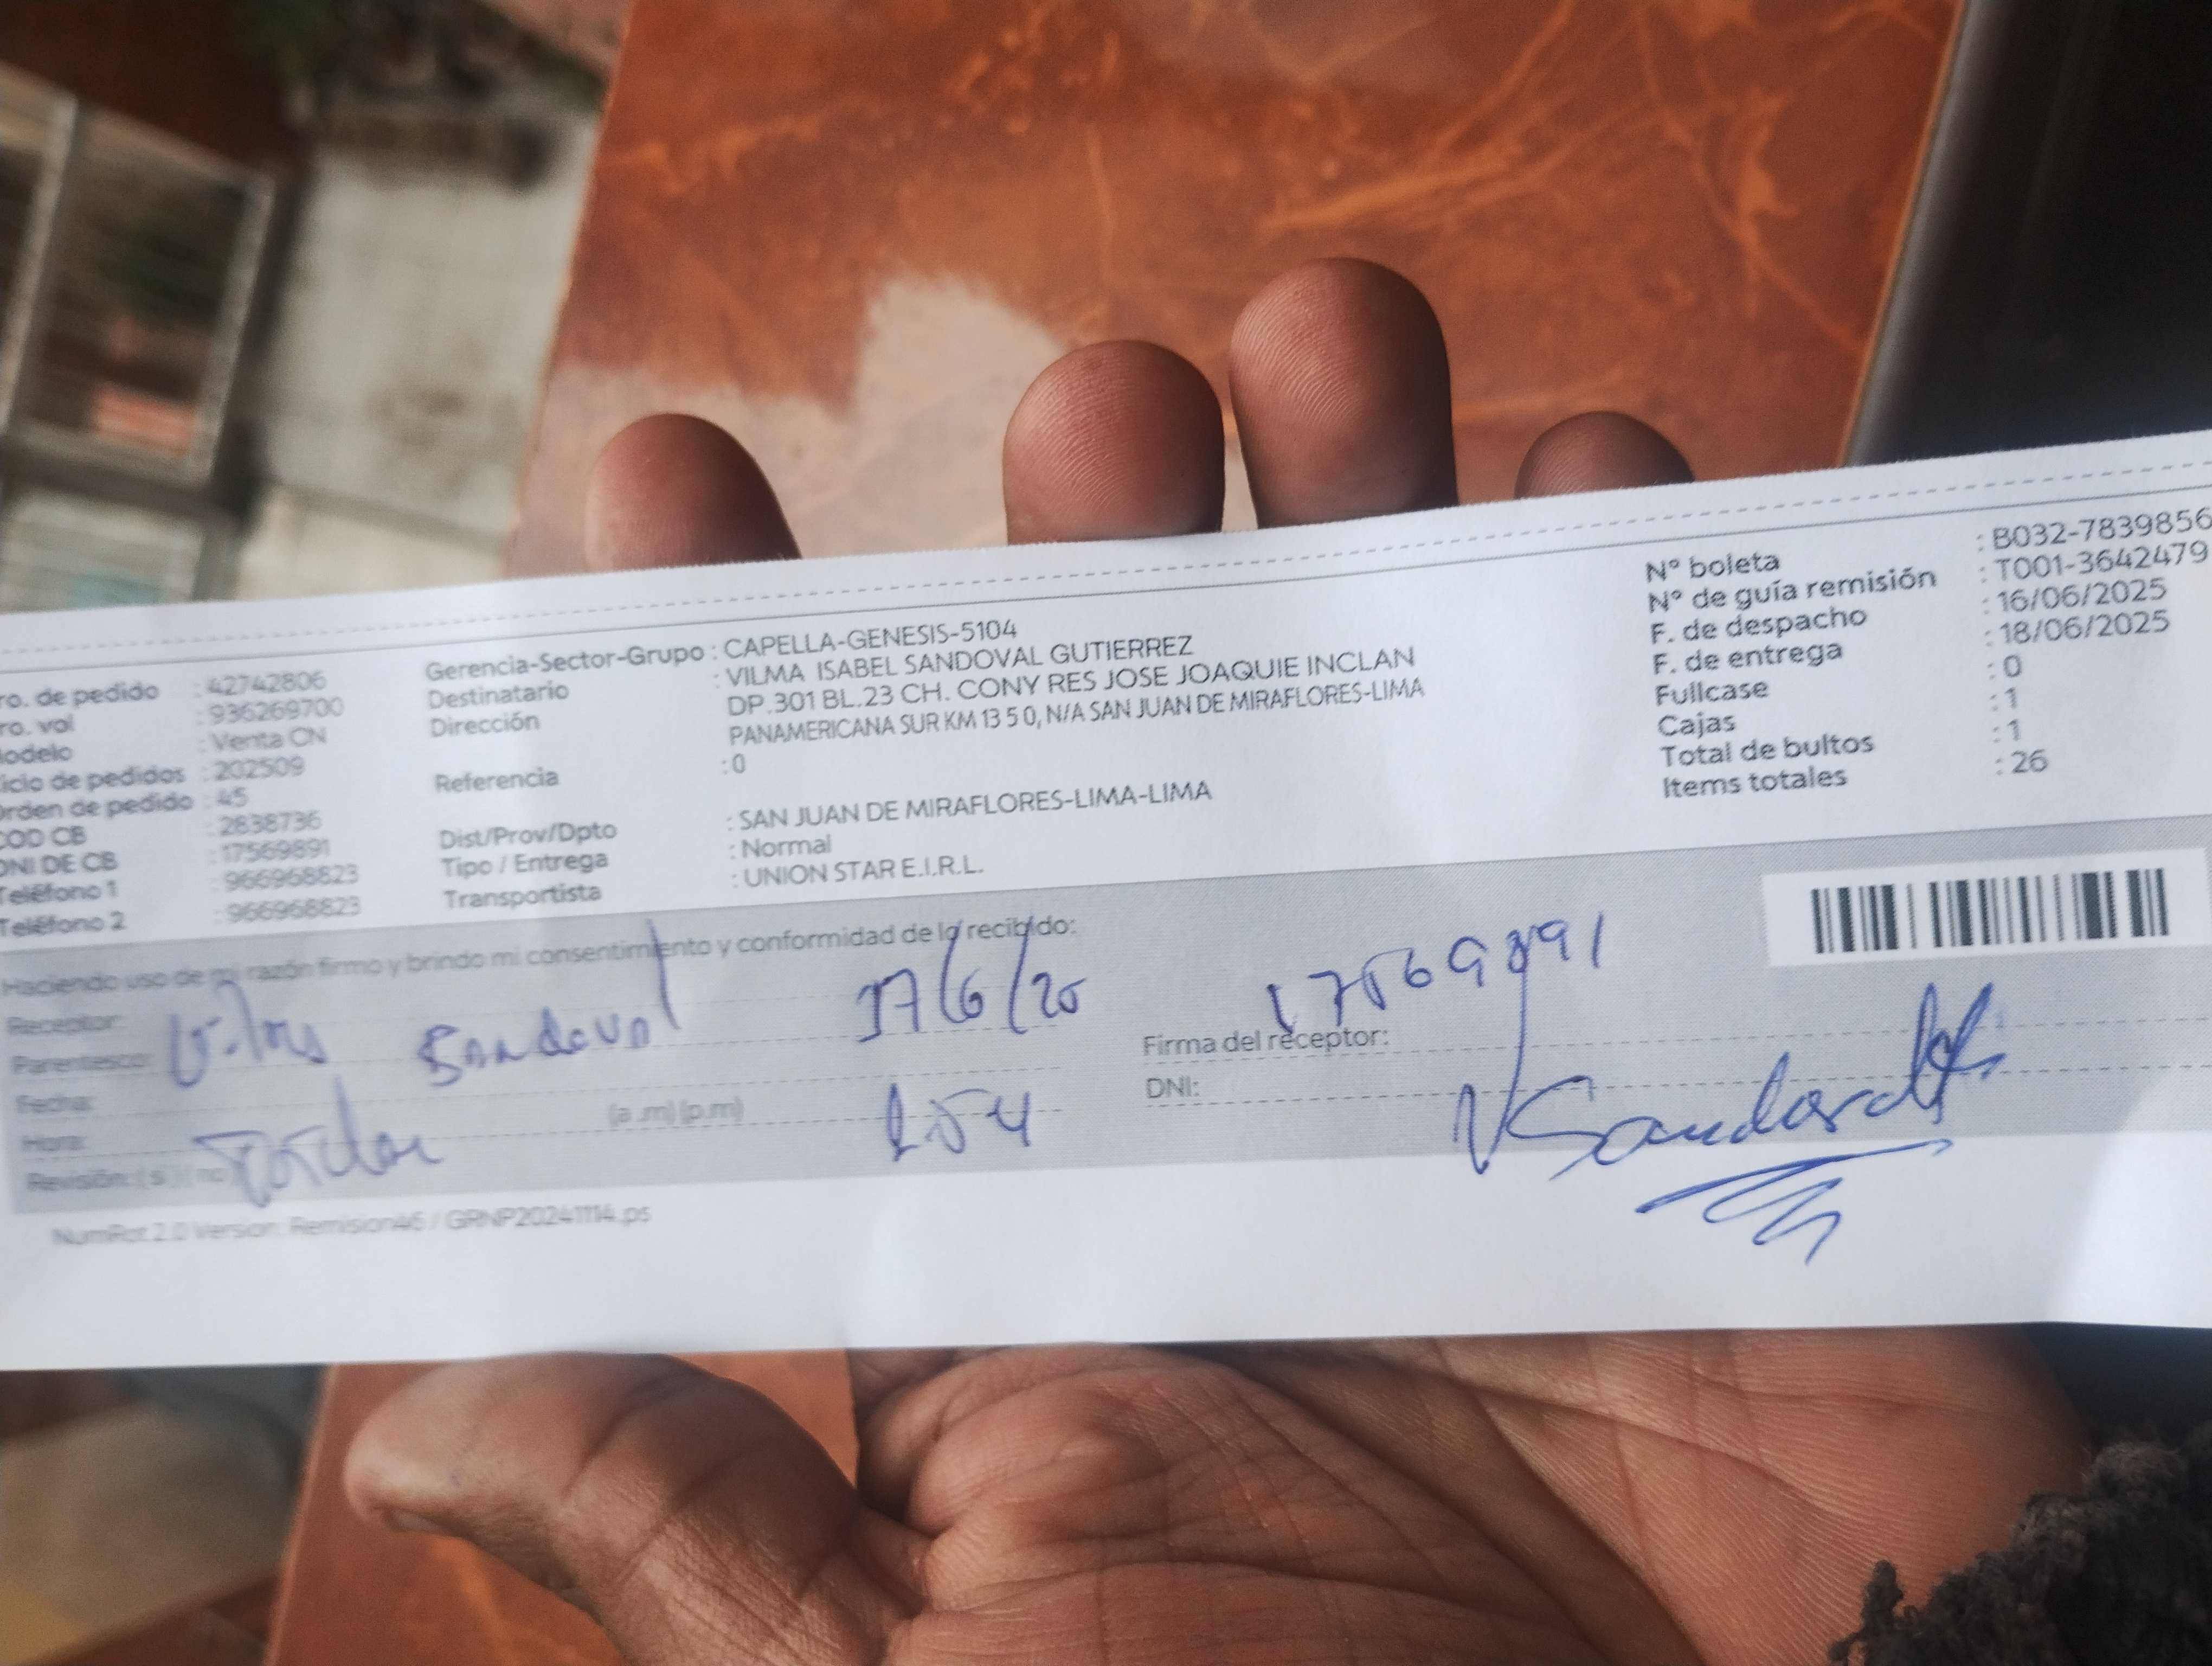 ro. de pedido : 42742806
ro. vol : 936269700
odelo : Venta CN
iclo de pedidos : 202509
rden de pedido : 45
COD CB : 2838736
DNI DE CB : 17569891
Teléfono 1 : 966968823
Teléfono 2 : 966968823
Gerencia-Sector-Grupo : CAPELLA-GENESIS-5104
Destinatario : VILMA ISABEL SANDOVAL GUTIERREZ
Dirección DP.301 BL.23 CH. CONY RES JOSE JOAQUIE INCLAN
PANAMERICANA SUR KM 13 5 0, N/A SAN JUAN DE MIRAFLORES-LIMA
Referencia : 0
Dist/Prov/Dpto : SAN JUAN DE MIRAFLORES-LIMA-LIMA
Tipo / Entrega : Normal
Transportista : UNION STAR E.I.R.L.
N° boleta : B032-7839856
N° de guía remisión : T001-3642479
F. de despacho : 16/06/2025
F. de entrega : 18/06/2025
Fullcase : 0
Cajas : 1
Total de bultos : 1
Items totales : 26
Haciendo uso de mi razón firmo y brindo mi consentimiento y conformidad de lo recibido:
Receptor:
Parentesco: Sandoval 17/6/25 17569891
Firma del receptor:
Fecha:
DNI:
Hora: (a.m) (p.m) 254
VSandoval
Revisión: ( s ) ( no )
NumRot 2.0 Version: Remision46 / GRNP20241114.ps